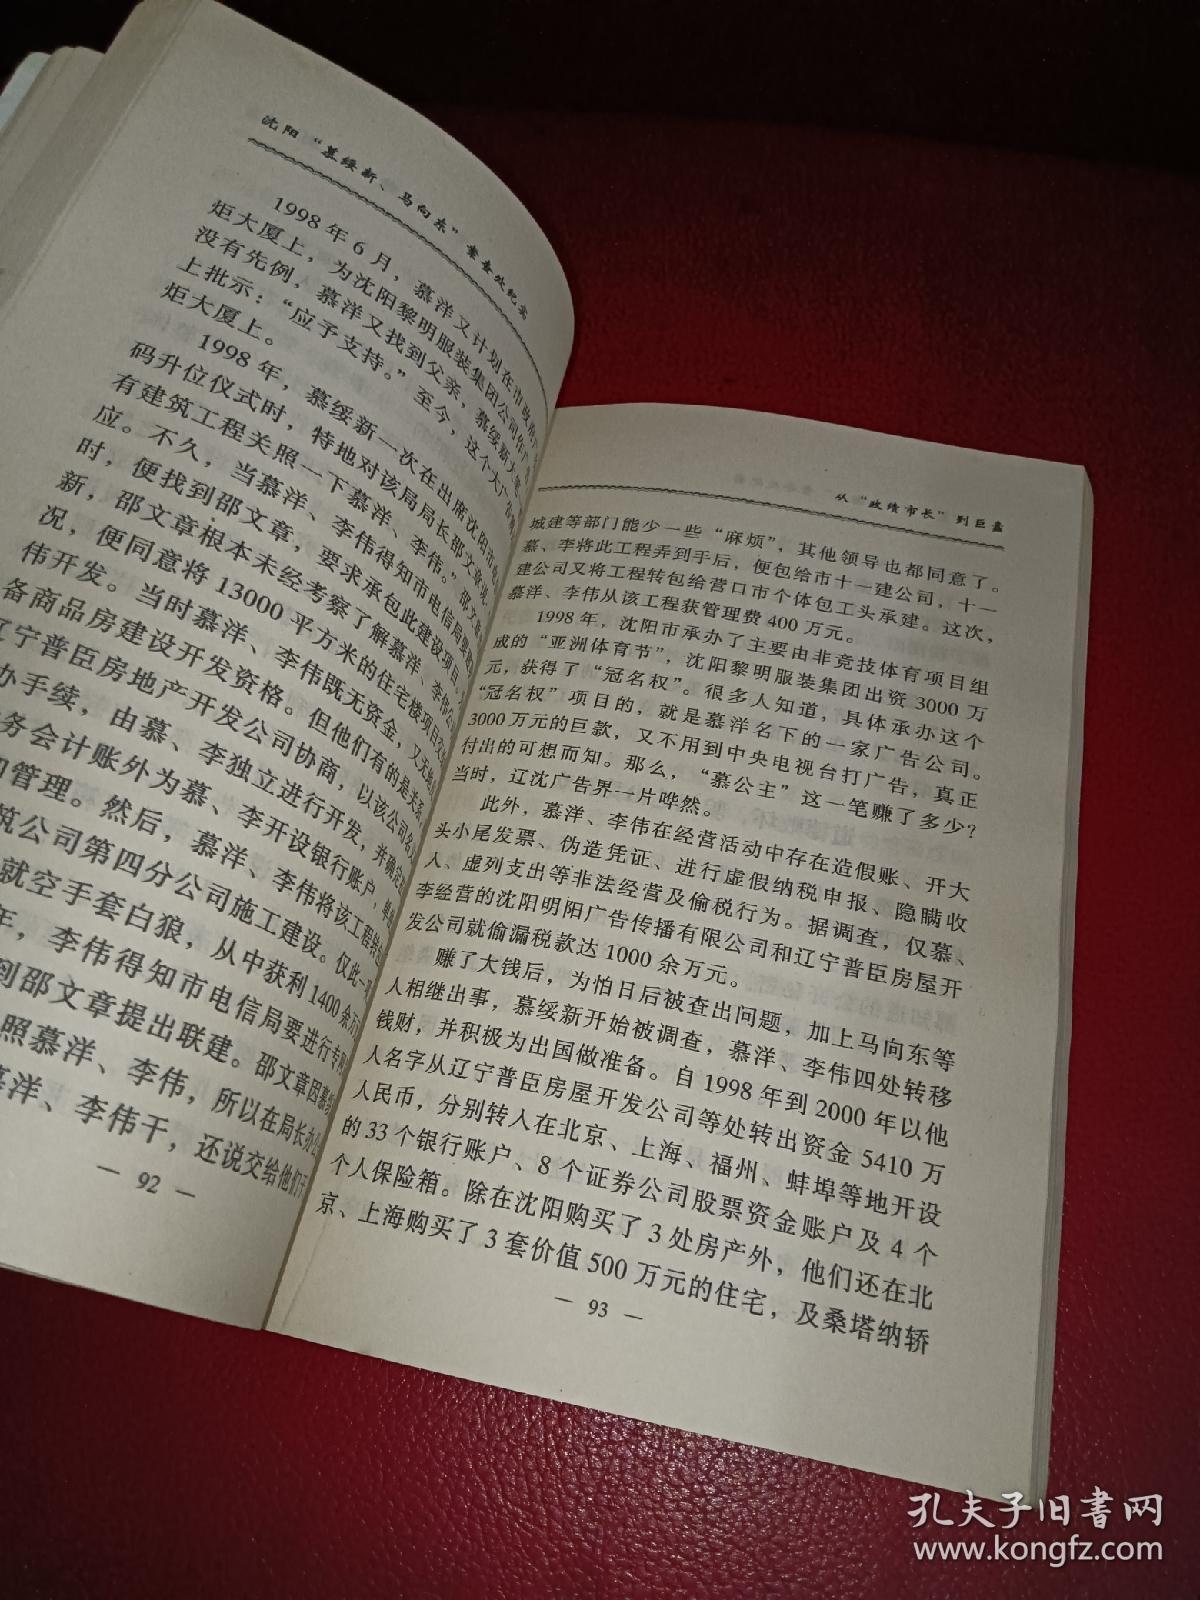 沈阳“慕绥新、马向东”案查处纪实
1998年6月，慕洋又计划在市政府
炬大厦上，为沈阳黎明服装集团公司作广告
没有先例，慕洋又找到父亲，慕绥新大笔
上批示：“应予支持。”至今，这个大广告
炬大厦上。
1998年，慕绥新一次在出席沈阳市电
码升位仪式时，特地对该局局长邵文章说
有建筑工程关照一下慕洋、李伟。”邵文章
应。不久，当慕洋、李伟得知市电信局要建
时，便找到邵文章，要求承包此建设项目。
新，邵文章根本未经考察了解慕洋、李伟公
况，便同意将13000平方米的住宅楼项目交
伟开发。当时慕洋、李伟既无资金，又无
备商品房建设开发资格。但他们有的是关系，
辽宁普臣房地产开发公司协商，以该公司名
办手续，由慕、李独立进行开发，并确定
务会计账外为慕、李开设银行账户，单
管理。然后，慕洋、李伟将该工程转
筑公司第四分公司施工建设。仅此一项
就空手套白狼，从中获利1400余万
年，李伟得知市电信局要进行专网
到邵文章提出联建。邵文章因慕
照慕洋、李伟，所以在局长办公
慕洋、李伟干，还说交给他们干
— 92 —
从“政绩市长”到巨蠹
城建等部门能少一些“麻烦”，其他领导也都同意了。
慕、李将此工程弄到手后，便包给市十一建公司，十一
建公司又将工程转包给营口市个体包工头承建。这次，
慕洋、李伟从该工程获管理费400万元。
1998年，沈阳市承办了主要由非竞技体育项目组
成的“亚洲体育节”，沈阳黎明服装集团出资3000万
元，获得了“冠名权”。很多人知道，具体承办这个
“冠名权”项目的，就是慕洋名下的一家广告公司。
3000万元的巨款，又不用到中央电视台打广告，真正
付出的可想而知。那么，“慕公主”这一笔赚了多少？
当时，辽沈广告界一片哗然。
此外，慕洋、李伟在经营活动中存在造假账、开大
头小尾发票、伪造凭证、进行虚假纳税申报、隐瞒收
入、虚列支出等非法经营及偷税行为。据调查，仅慕、
李经营的沈阳明阳广告传播有限公司和辽宁普臣房屋开
发公司就偷漏税款达1000余万元。
赚了大钱后，为怕日后被查出问题，加上马向东等
人相继出事，慕绥新开始被调查，慕洋、李伟四处转移
钱财，并积极为出国做准备。自1998年到2000年以他
人名字从辽宁普臣房屋开发公司等处转出资金5410万
人民币，分别转入在北京、上海、福州、蚌埠等地开设
的33个银行账户、8个证券公司股票资金账户及4个
个人保险箱。除在沈阳购买了3处房产外，他们还在北
京、上海购买了3套价值500万元的住宅，及桑塔纳轿
— 93 —
孔夫子旧书网
www.kongfz.com